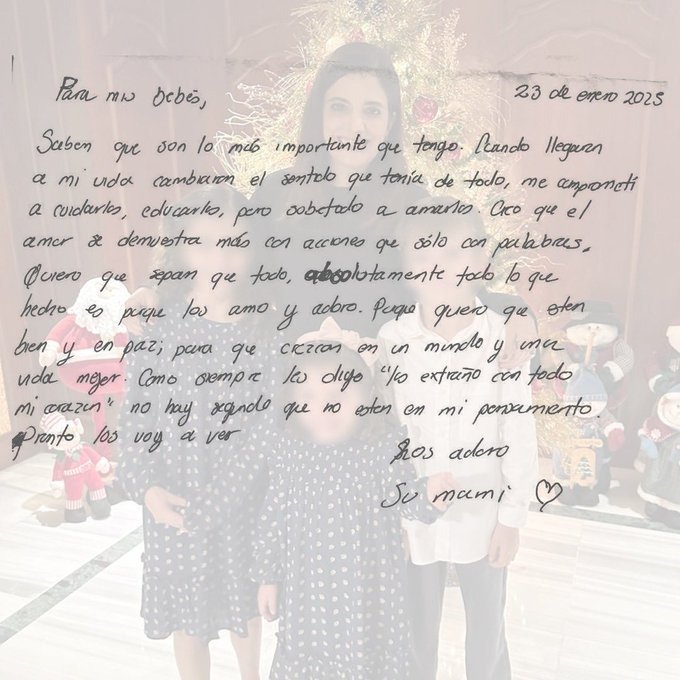 Para mis bebés,
23 de enero 2025
Saben que son lo más importante que tengo. Cuando llegaron
a mi vida cambiaron el sentido que tenía de todo, me comprometí
a cuidarlos, educarlos, pero sobretodo a amarlos. Creo que el
amor se demuestra más con acciones que sólo con palabras.
Quiero que sepan que todo, absolutamente todo lo que
hecho es porque los amo y adoro. Porque quiero que esten
bien y en paz; para que crezcan en un mundo y una
vida mejor. Como siempre les digo "los extraño con todo
mi corazón" no hay segundo que no esten en mi pensamiento.
Pronto los voy a ver
Los adoro
Su mami